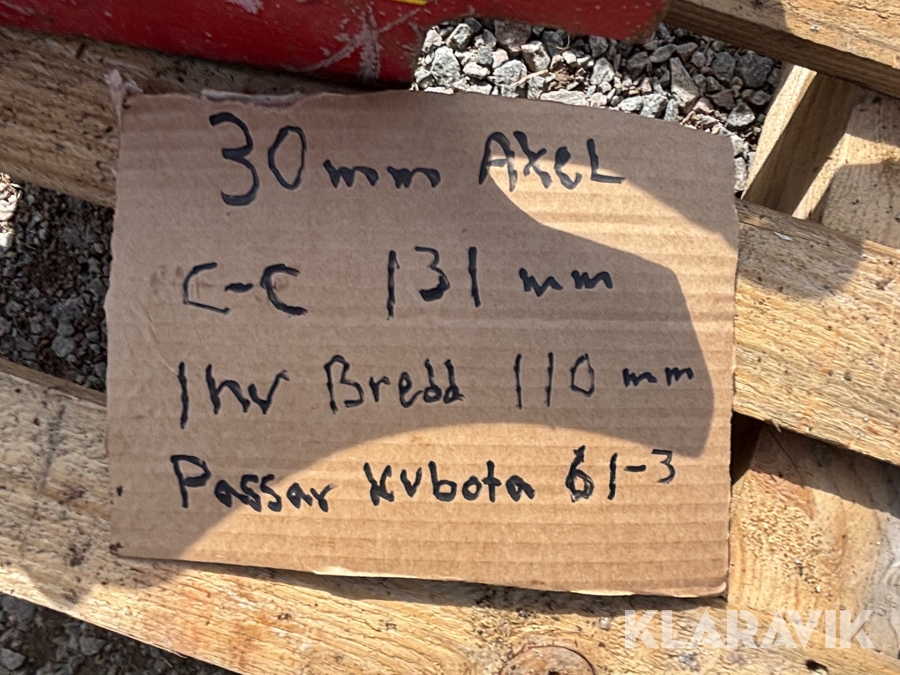 30 mm Axel
C-C 131 mm
Inv Bredd 110 mm
Passar Kubota 61-3
KLARAVIK